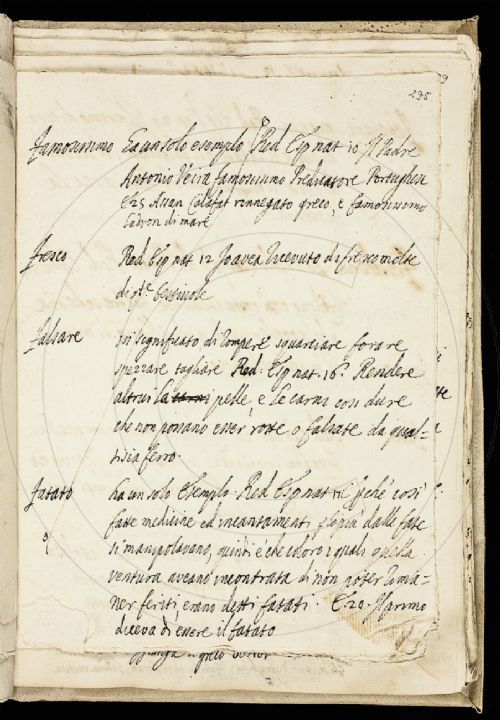 295
Famosissimo Ha un solo esemplo Red Esp nat 10 Il Padre
Antonio Veira famosissimo Predicatore Portughese
E 25 Assan Calafat rinnegato greco, e famosissimo
ladron di mare
Fresco Red Esp nat 12 Io avea ricevuto di fresco molte
di q.te bestiuole
Falsare in significato di rompere squarciare forare
spezzare tagliare Red: Esp nat. 16. Rendere
altrui la carni pelle, e le carni così dure
che non possano esser rotte o falsate da qual=
sisia ferro.
Fatato ha un solo Esemplo Red Esp nat perché così
fatte medicine ed incantamenti dalle fate
si manipolavano, quindi è che coloro i quali quella
ventura aveano incontrata di non poter rima=
ner feriti, erano detti fatati. E 20. Marmo
diceva d'essere il fatato
greco